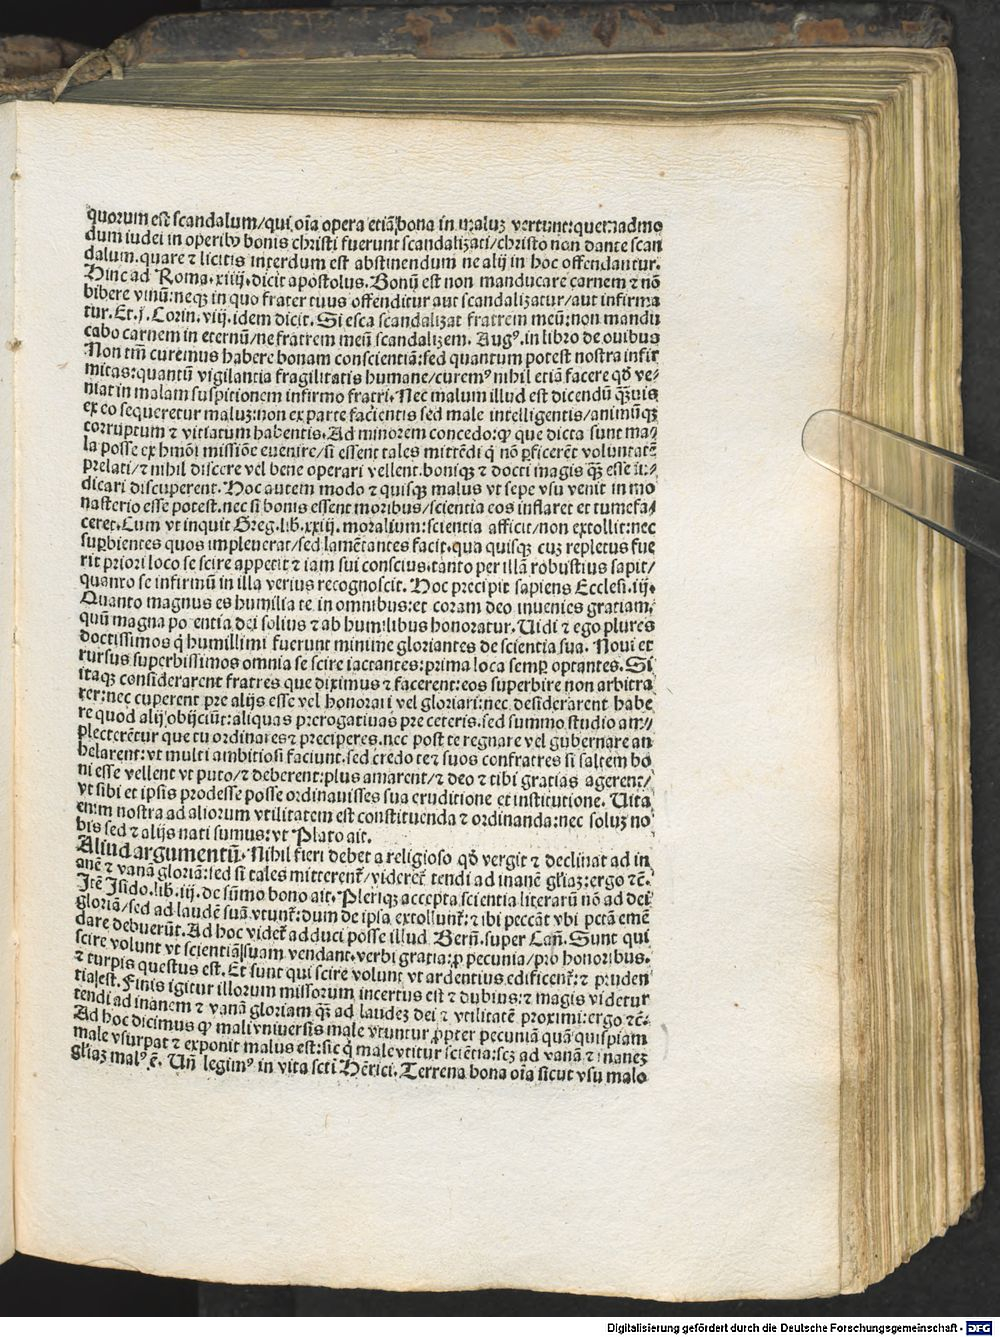 quorum est scandalum/qui oīa opera etiā bona in maluʒ vertunt:quemadmo
dum iudei in operibꝰ bonis christi fuerunt scandalizati/christo non dante scan
dalum.quare ⁊ licitis interdum est abstinendum ne alij in hoc offendantur.
Hinc ad Roma.xiiij.dicit apostolus.Bonū est non manducare carnem ⁊ nō
bibere vinū:neqʒ in quo frater tuus offenditur aut scandalizatur/aut infirma
tur.Et.j.Corin.viij.idem dicit.Si esca scandalizat fratrem meū:non mandu
cabo carnem in eternū/ne fratrem meū scandalizem. Augꝰ.in libro de ouibus
Non tm̄ curemus habere bonam conscientiā:sed quantum potest nostra infir
mitas:quantū vigilantia fragilitatis humane/curemꝰ nihil etiā facere qđ ve⸗
niat in malam suspitionem infirmo fratri.Nec malum illud est dicendū qʒ̄uis
ex eo sequeretur maluʒ:non ex parte facientis sed male intelligentis/animūqʒ
corruptum ⁊ vitiatum habentis.Ad minorem concedo:ꝙ que dicta sunt ma⸗
la posse ex hmōi missiōe euenire/si essent tales mittēdi q̄ nō ꝑficerēt voluntatē
prelati/⁊ nihil discere vel bene operari vellent.boniqʒ ⁊ docti magis qʒ̄ esse iu⸗
dicari discuperent.Hoc autem modo ⁊ quisqʒ malus vt sepe vsu venit in mo
nasterio esse potest.nec si bonis essent moribus/scientia eos inflaret et tumefa⸗
ceret.Cum vt inquit Greg.lib̄.xxiij.moralium:scientia afficit/non extollit:nec
suꝑbientes quos impleuerat/sed lamētantes facit.qua quisqʒ cuʒ repletus fue
rit priori loco se scire appetit ⁊ iam sui conscius.tanto per illā robustius sapit/
quanto se infirmū in illa verius recognoscit. Hoc precipit sapiens Ecclesi.iij.
Quanto magnus es humilia te in omnibus:et coram deo inuenies gratiam.
quū magna po entia dei solius ⁊ ab humilibus honoratur.Uidi ⁊ ego plures
doctissimos q̄ humillimi fuerunt minime gloriantes de scientia sua. Noui et
rursus superbissimos omnia se scire iactantes:prima loca semꝑ optantes.Si
itaqʒ considerarent fratres que diximus ⁊ facerent:eos superbire non arbitra
rer:nec cuperent pre alijs esse vel honorari vel gloriari:nec desiderarent habe
re quod alij obijciūt:aliquas prerogatiuas pre ceteris.sed summo studio am⸗
plecterētur que tu ordinares ⁊ preciperes.nec post te regnare vel gubernare an
helarent:vt multi ambitiosi faciunt.sed credo te ⁊ suos confratres si saltem bo
ni esse vellent vt puto/⁊ deberent:plus amarent/⁊ deo ⁊ tibi gratias agerent/
vt sibi et ipsis prodesse posse ordinauisses sua eruditione et institutione. Uita
enim nostra ad aliorum vtilitatem est constituenda ⁊ ordinanda:nec soluʒ no
bis sed ⁊ alijs nati sumus:vt Plato ait.
Aliud argumentū.Nihil fieri debet a religioso qđ vergit ⁊ declinat ad in
anē ⁊ vanā gloriā:sed si tales mitterent᷑/videret᷑ tendi ad inanē gl̄iaʒ:ergo ⁊c̄.
Itē Isido.lib.iij.de sūmo bono ait.Pleriqʒ accepta scientia literarū nō ad dei
gloriā/sed ad laudē suā vtunt᷑:dum de ipsa extollunt᷑:⁊ ibi peccāt vbi pctā emē
dare debuerūt.Ad hoc videt᷑ adduci posse illud Bern̄.super Can̄.Sunt qui
scire volunt vt scientiā suam vendant.verbi gratia:ꝓ pecunia/pro honoribus.
⁊ turpis questus est.Et sunt qui scire volunt vt ardentius edificent᷑:⁊ pruden
tia est.Finis igitur illorum missorum incertus est ⁊ dubius:⁊ magis videtur
tendi ad inanem ⁊ vanā gloriam qʒ̄ ad laudeʒ dei ⁊ vtilitatē proximi:ergo ⁊c̄.
Ad hoc dicimus ꝙ mali vniuersis male vtuntur ꝓpter pecuniā quā quispiam
male vsurpat ⁊ exponit malus est:sic q̄ male vtitur sciētia:scʒ ad vanā ⁊ inaneʒ
gl̄iaʒ malꝰ ē. Un̄ legimꝰ in vita scti Hērici.Terrena bona oīa sicut vsu malo
Digitalisierung gefördert durch die Deutsche Forschungsgemeinschaft - DFG